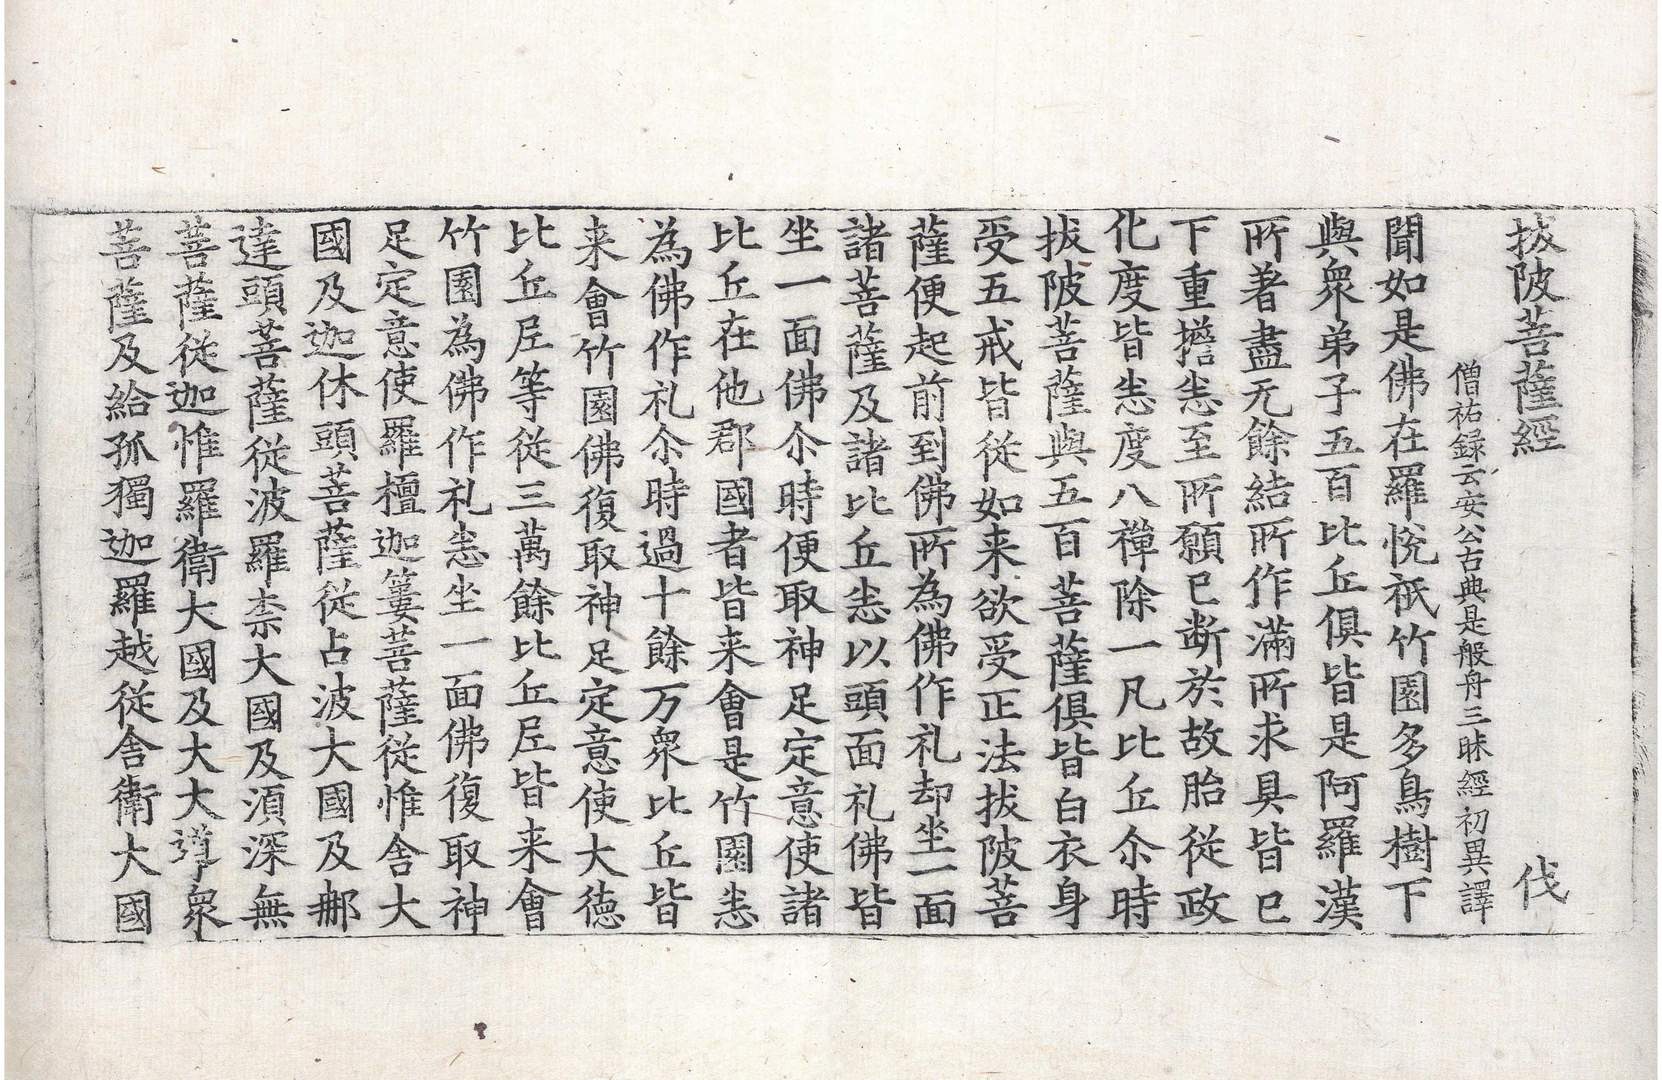 拔陂菩薩經 伐
僧祐録云安公古典是般舟三昧經初異譯
聞如是佛在羅悅祇竹園多鳥樹下
與衆弟子五百比丘俱皆是阿羅漢
所著盡无餘結所作滿所求具皆已
下重擔恙至所願已断於故胎從政
化度皆恙度八禪除一凡比丘尒時
拔陂菩薩與五百菩薩俱皆白衣身
受五戒皆從如来欲受正法拔陂菩
薩便起前到佛所為佛作礼却坐一面
諸菩薩及諸比丘恙以頭面礼佛皆
坐一面佛尒時便取神足定意使諸
比丘在他郡國者皆来會是竹園恙
為佛作礼尒時過十餘万衆比丘皆
来會竹園佛復取神足定意使大德
比丘尼等從三萬餘比丘尼皆来會
竹園為佛作礼恙坐一面佛復取神
足定意使羅檀迦簍菩薩從惟舍大
國及迦休頭菩薩從占波大國及𨚗
達頭菩薩從波羅柰大國及湏深無
菩薩從迦惟羅衛大國及大大導衆
菩薩及給孤獨迦羅越從舍衛大國